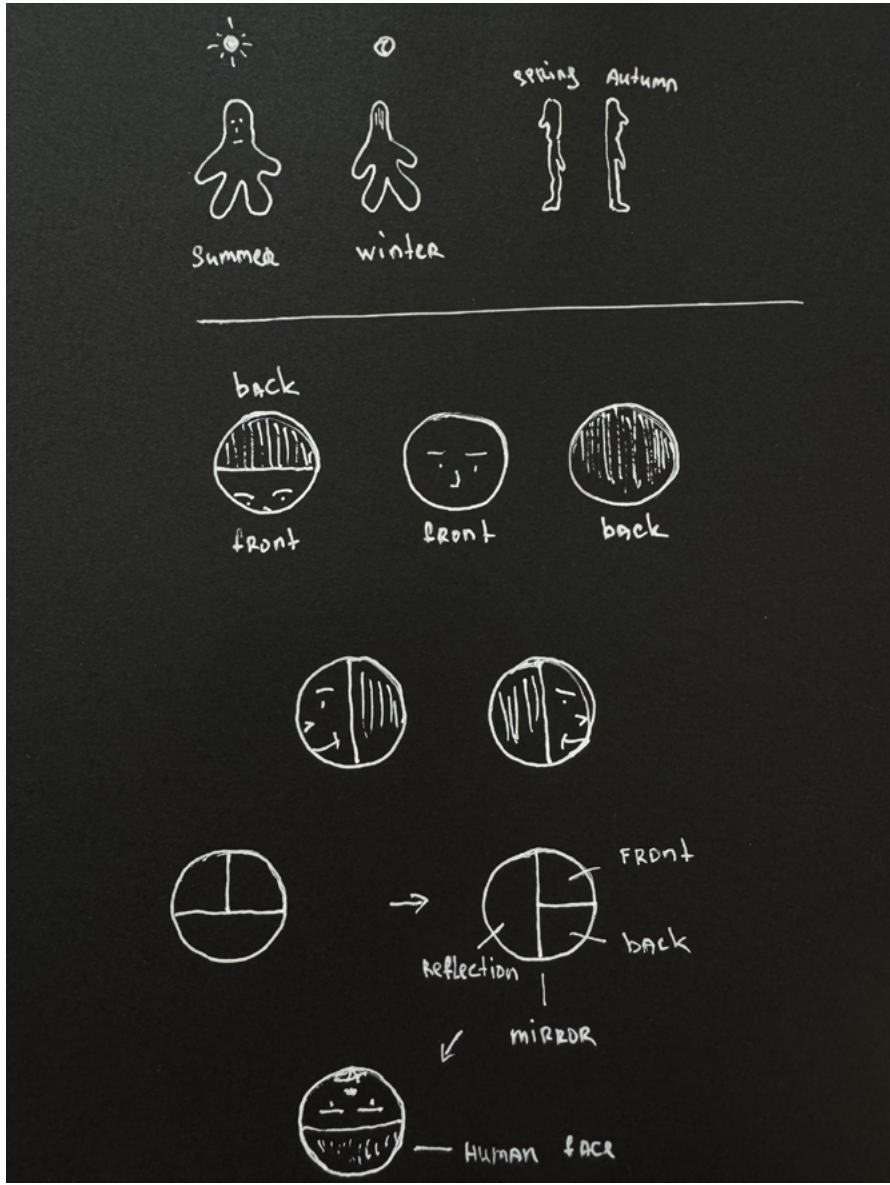 Spring Autumn
Summer winter
back
front front back
FRont
back
Reflection
MIRROR
Human face